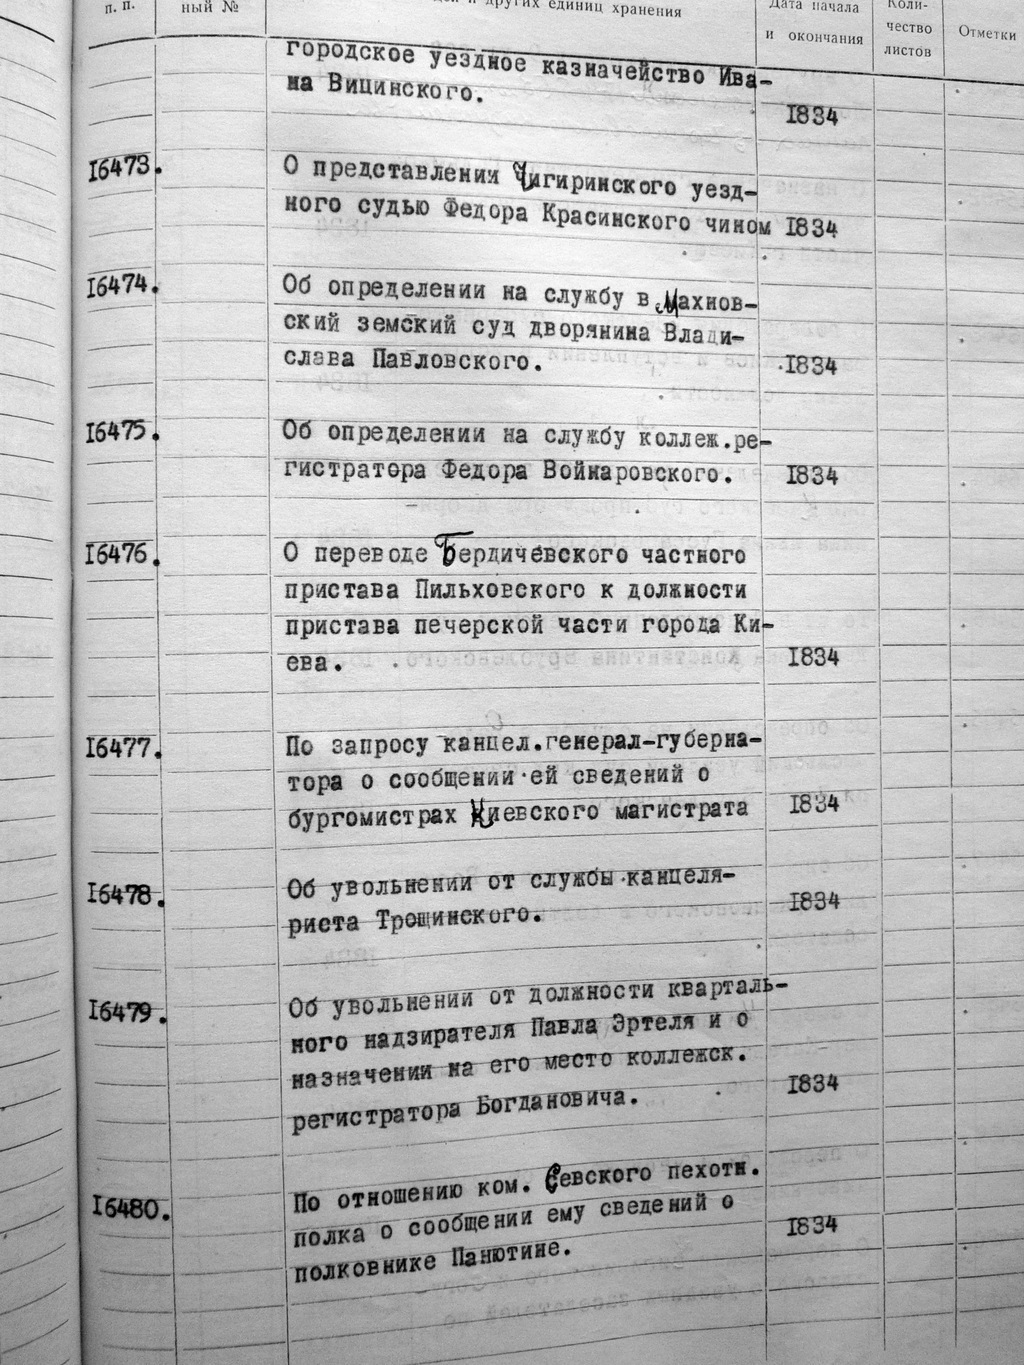 п. п. ный № и других единиц хранения Дата начала и окончания Коли- чество листов Отметки
городское уездное казначейство Ива-
на Вицинского. 1834
16473. О представлении Чигиринского уезд-
ного судью Федора Красинского чином 1834
16474. Об определении на службу в Махнов-
ский земский суд дворянина Влади-
слава Павловского. 1834
16475. Об определении на службу коллеж.ре-
гистратора Федора Войнаровского. 1834
16476. О переводе Бердичевского частного
пристава Пильховского к должности
пристава печерской части города Ки-
ева. 1834
16477. По запросу канцел.генерал-губерна-
тора о сообщении ей сведений о
бургомистрах Киевского магистрата 1834
16478. Об увольнении от службы канцеля-
риста Трощинского. 1834
16479. Об увольнении от должности кварталь-
ного надзирателя Павла Эртеля и о
назначении на его место коллежск.
регистратора Богдановича. 1834
16480. По отношению ком. Севского пехотн.
полка о сообщении ему сведений о
полковнике Панютине. 1834